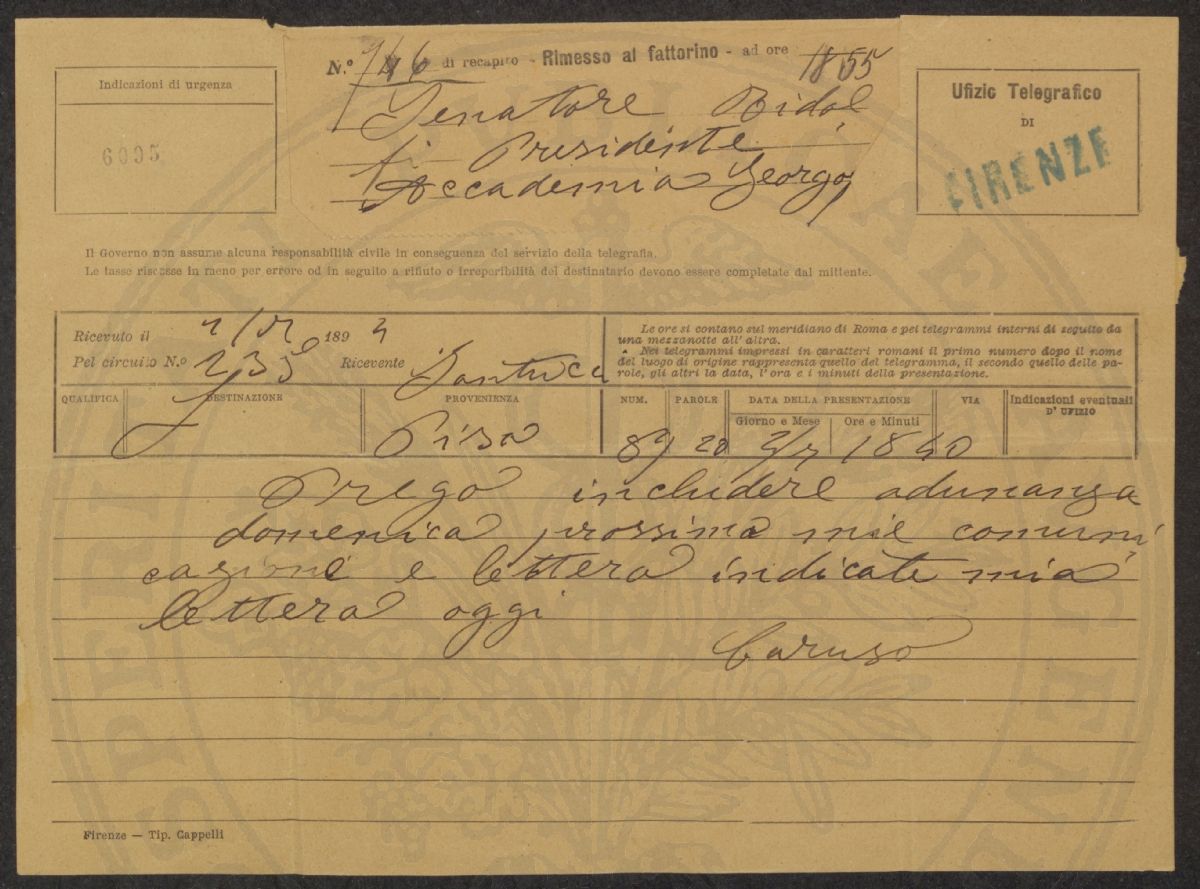 N.º 146 di recapito - Rimesso al fattorino - ad ore 1855
Senatore Ridol
fi Presidente
Accademia Georgo
Indicazioni di urgenza
6095
Ufizio Telegrafico
DI
FIRENZE
Il Governo non assume alcuna responsabilità civile in conseguenza del servizio della telegrafia.
Le tasse riscosse in meno per errore od in seguito a rifiuto o irreperibilità del destinatario devono essere completate dal mittente.
Ricevuto il 189
Pel circuito N.º 235 Ricevente Santucci
Le ore si contano sul meridiano di Roma e pei telegrammi interni di seguito da
una mezzanotte all' altra.
Nei telegrammi impressi in caratteri romani il primo numero dopo il nome
del luogo di origine rappresenta quello del telegramma, il secondo quello delle pa-
role, gli altri la data, l'ora e i minuti della presentazione.
QUALIFICA DESTINAZIONE PROVENIENZA NUM. PAROLE DATA DELLA PRESENTAZIONE VIA Indicazioni eventuali
D' UFIZIO
Giorno e Mese Ore e Minuti
Pisa 89 20 1840
Prego includere adunanza
domenica prossima mie comuni
cazione e lettera indicate mia
lettera oggi
Caruso
Firenze — Tip. Cappelli